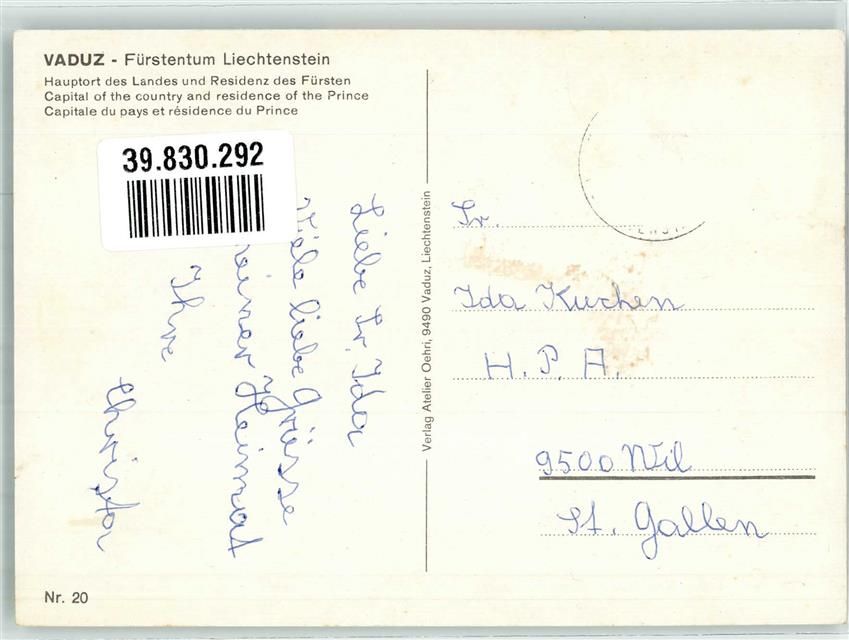 VADUZ - Fürstentum Liechtenstein
Hauptort des Landes und Residenz des Fürsten
Capital of the country and residence of the Prince
Capitale du pays et résidence du Prince
39.830.292
Liebe Sr. Ida
Viele liebe Grüsse
meiner Heimat
Ihre
Christa
Nr. 20
Verlag Atelier Oehri, 9490 Vaduz, Liechtenstein
Sr.
Ida Kuchen
H. P. A.
9500 Wil
St. Gallen